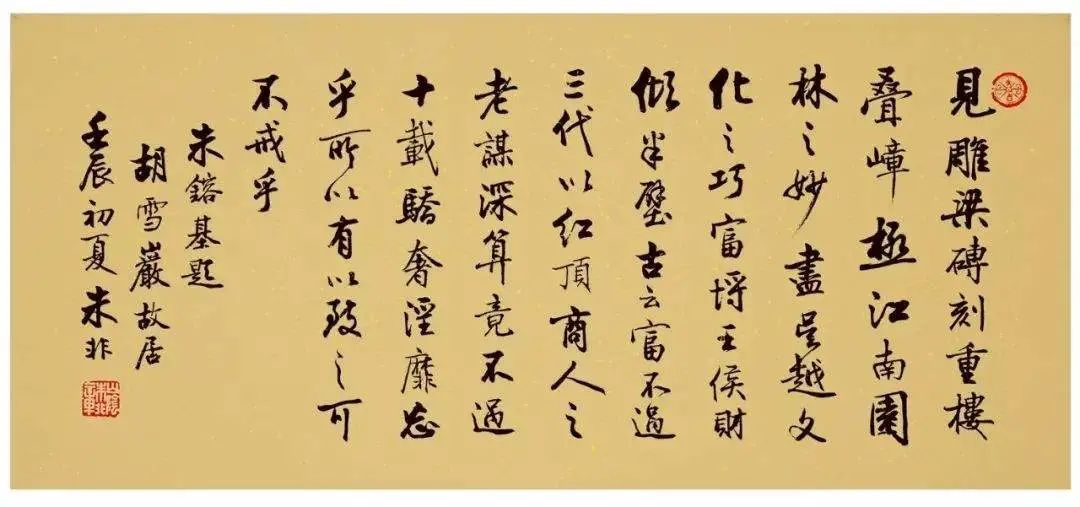 見雕梁磚刻重樓
叠嶂極江南園
林之妙盡吳越文
化之巧富埒王侯財
傾半壁古云富不過
三代以紅頂商人之
老謀深算竟不過
十載驕奢淫靡忘
乎所以有以致之可
不戒乎
朱鎔基題
胡雪巖故居
壬辰初夏 朱非